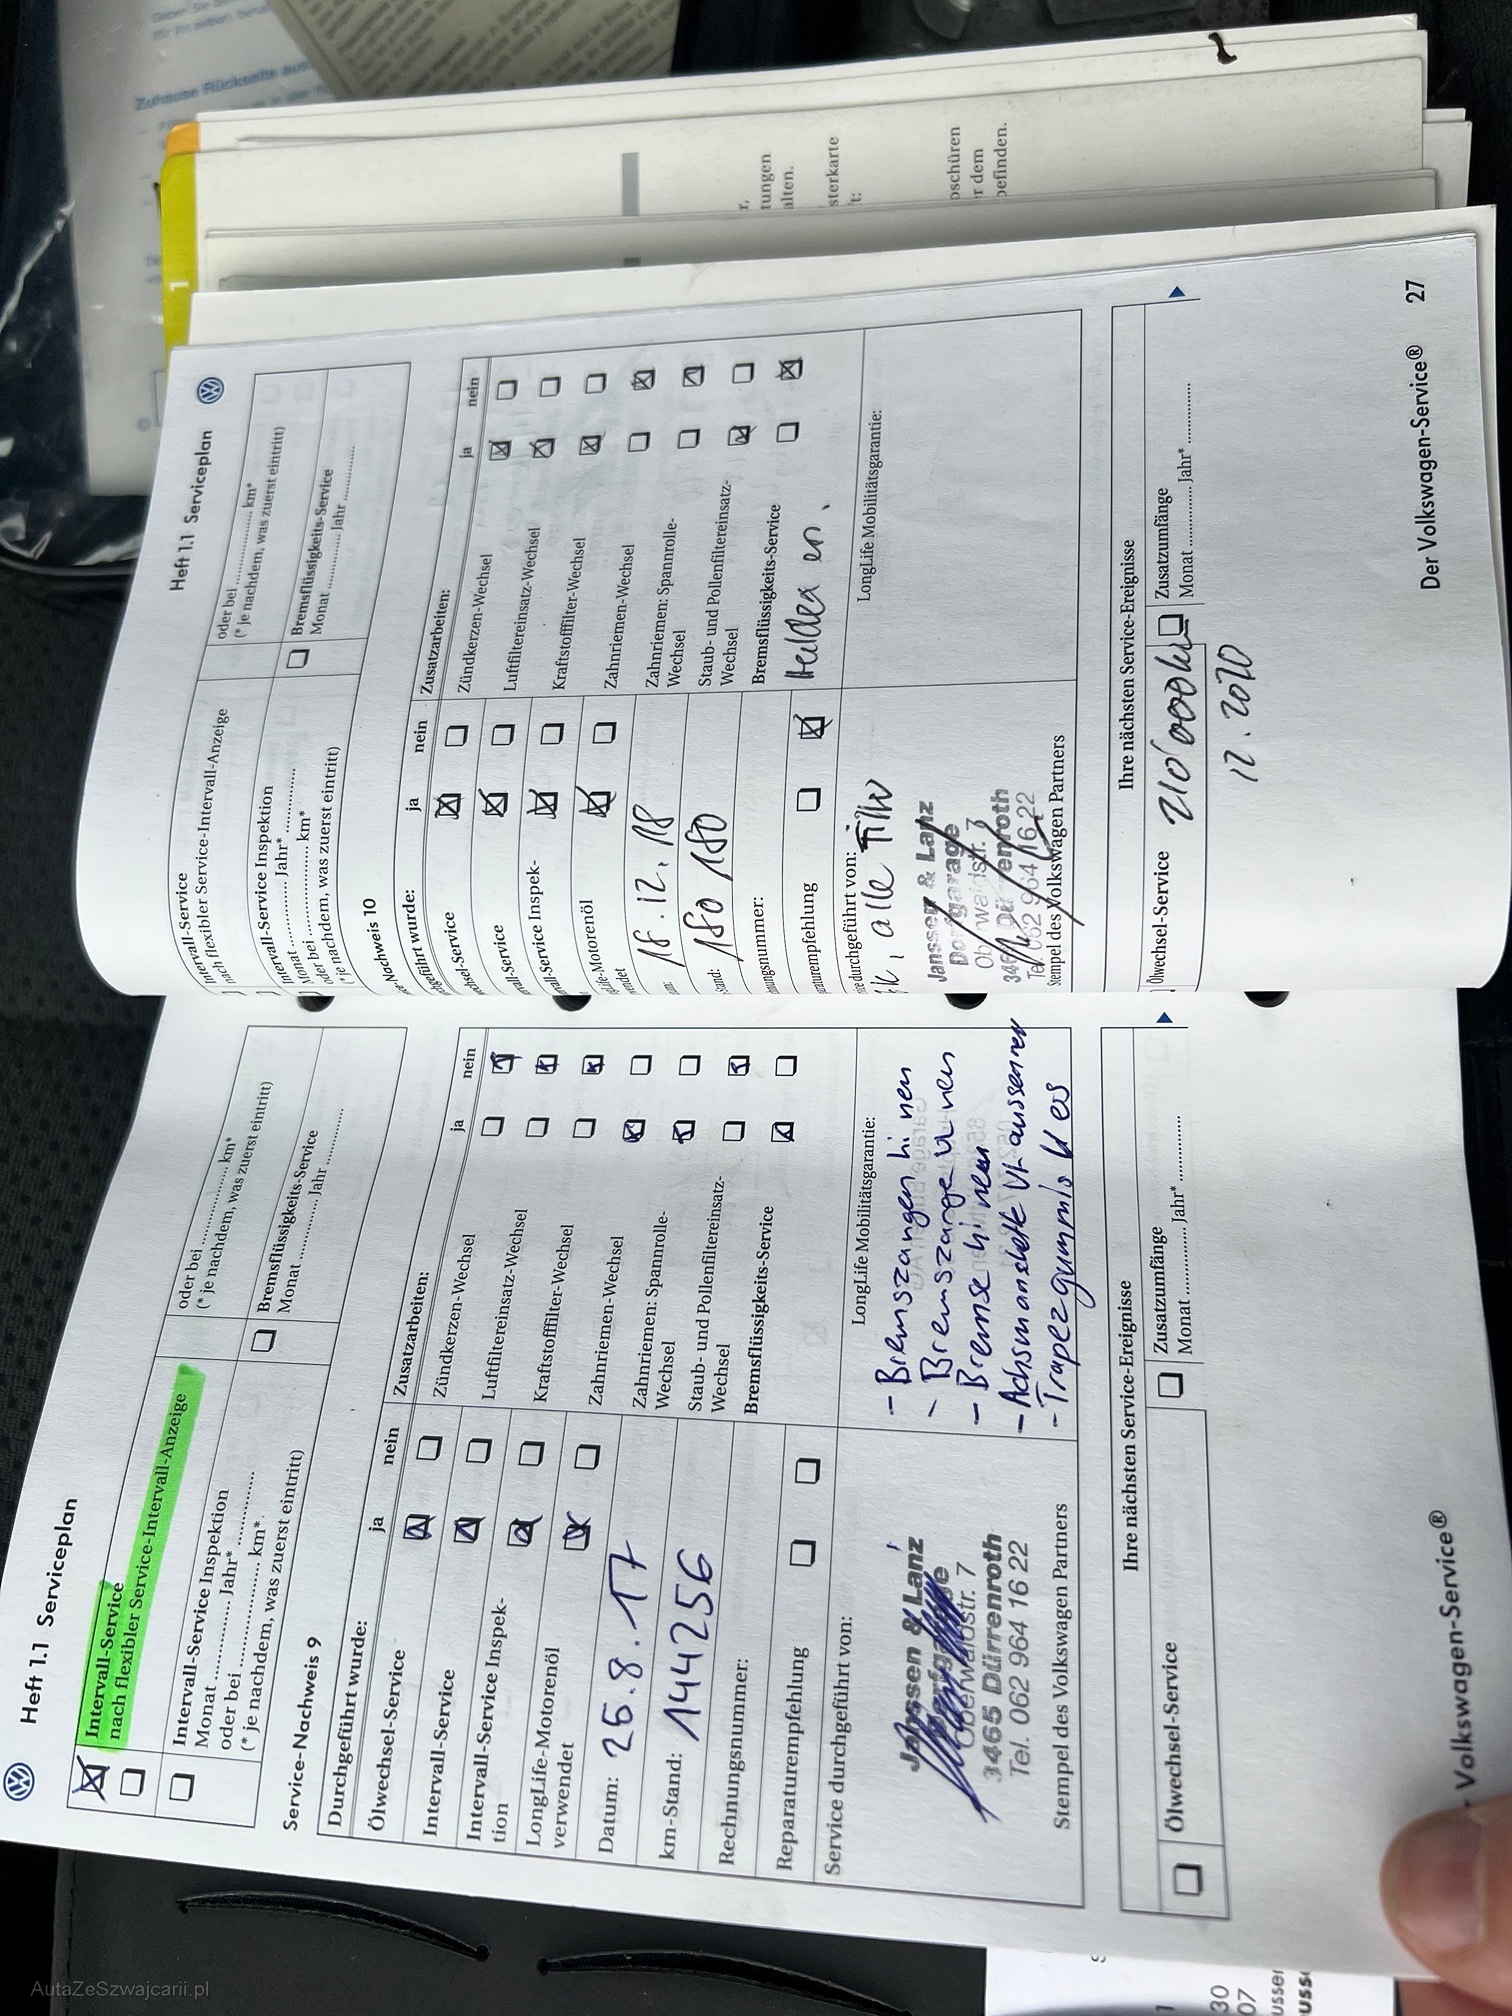 Heft 1.1 Serviceplan
Intervall-Service
nach flexibler Service-Intervall-Anzeige
Intervall-Service Inspektion
Monat ............ Jahr* ............
oder bei ............ km*
(* je nachdem, was zuerst eintritt)
oder bei ............ km*
(* je nachdem, was zuerst eintritt)
Bremsflüssigkeits-Service
Monat ............ Jahr ............
Service-Nachweis 9
Durchgeführt wurde:
ja nein
Ölwechsel-Service
Intervall-Service
Intervall-Service Inspek-
tion
LongLife-Motorenöl
verwendet
Datum: 25.8.17
km-Stand: 144256
Rechnungsnummer:
Reparaturempfehlung
Service durchgeführt von:
Janssen & Lanz
Dorfgarage
Oberwaldstr. 7
3465 Dürrenroth
Tel. 062 964 16 22
Stempel des Volkswagen Partners
Zusatzarbeiten:
ja nein
Zündkerzen-Wechsel
Luftfiltereinsatz-Wechsel
Kraftstofffilter-Wechsel
Zahnriemen-Wechsel
Zahnriemen: Spannrolle-
Wechsel
Staub- und Pollenfiltereinsatz-
Wechsel
Bremsflüssigkeits-Service
LongLife Mobilitätsgarantie:
- Bremszangen hi neu
- Bremszange neu
- Bremse hi neu
- Achsmanschette aussen neu
- Trapezgummis
Ihre nächsten Service-Ereignisse
Ölwechsel-Service
Zusatzumfänge
Monat ............ Jahr* ............
Volkswagen-Service®
Heft 1.1 Serviceplan
Intervall-Service
nach flexibler Service-Intervall-Anzeige
Intervall-Service Inspektion
Monat ............ Jahr* ............
oder bei ............ km*
(* je nachdem, was zuerst eintritt)
oder bei ............ km*
(* je nachdem, was zuerst eintritt)
Bremsflüssigkeits-Service
Monat ............ Jahr ............
e-Nachweis 10
geführt wurde:
ja nein
hsel-Service
all-Service
all-Service Inspek-
Life-Motorenöl
endet
18.12.18
Stand: 180 180
nungsnummer:
raturempfehlung
e durchgeführt von:
alle Filter
Janssen & Lanz
Dorfgarage
Oberwaldstr. 7
3465 Dürrenroth
Tel. 062 964 16 22
Stempel des Volkswagen Partners
Zusatzarbeiten:
ja nein
Zündkerzen-Wechsel
Luftfiltereinsatz-Wechsel
Kraftstofffilter-Wechsel
Zahnriemen-Wechsel
Zahnriemen: Spannrolle-
Wechsel
Staub- und Pollenfiltereinsatz-
Wechsel
Bremsflüssigkeits-Service
LongLife Mobilitätsgarantie:
Ihre nächsten Service-Ereignisse
Ölwechsel-Service
210'000km
12.2020
Zusatzumfänge
Monat ............ Jahr* ............
Der Volkswagen-Service® 27
1
r,
tungen
alten.
sterkarte
t:
oschüren
r dem
befinden.
Zuhause Rückseite aus
30
07
usser
AutaZeSzwajcarii.pl